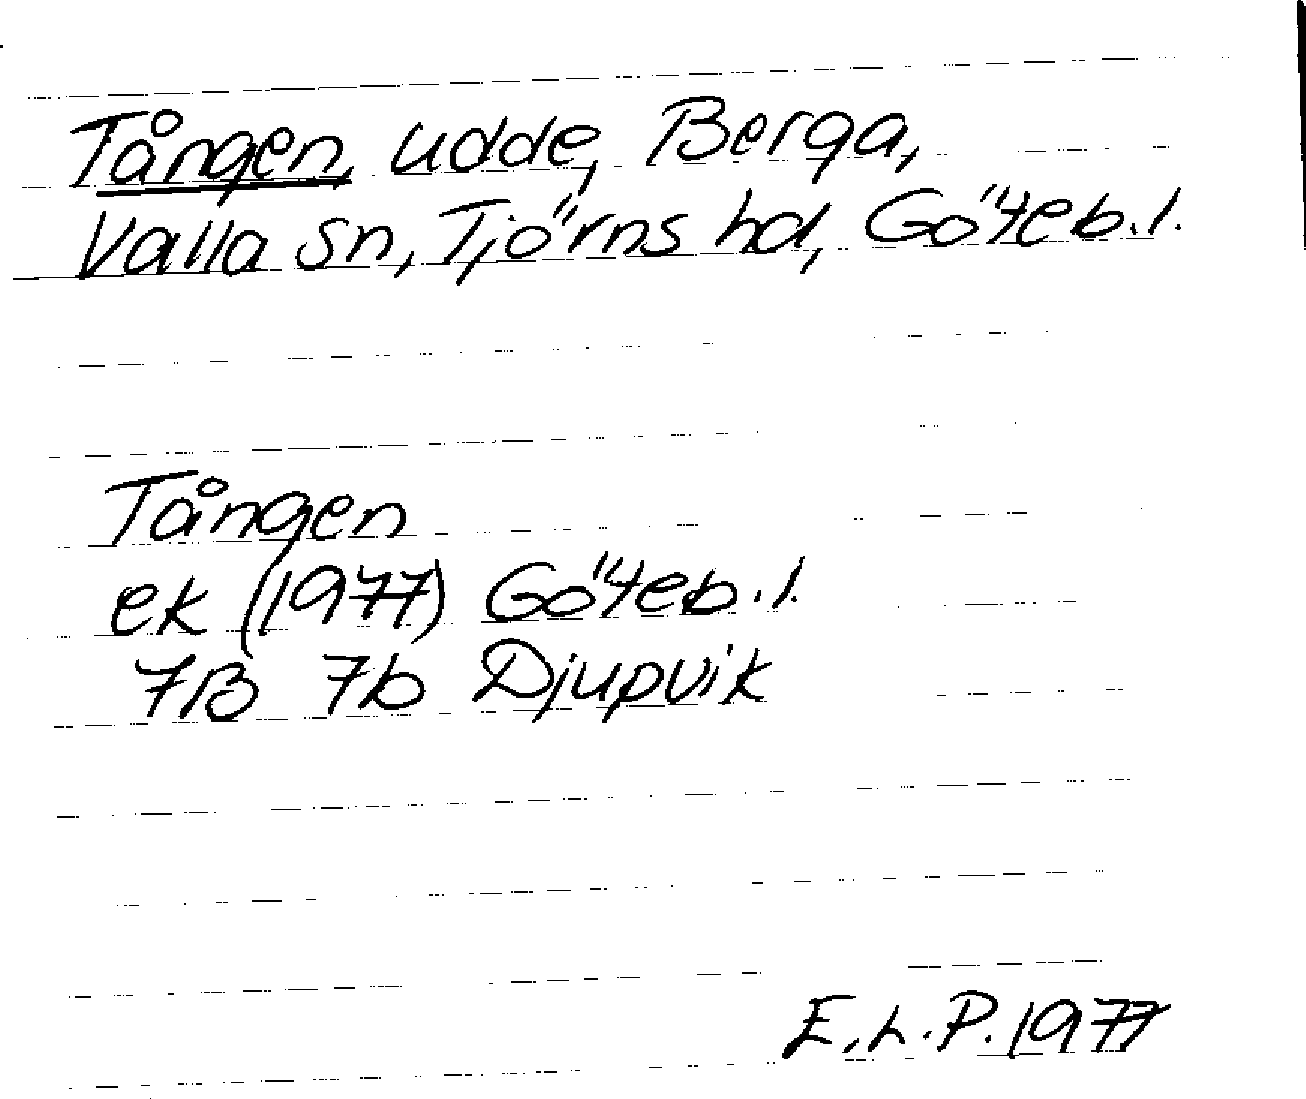 Tången, udde, Berga,
Valla sn, Tjörns hd, Göteb.l.
Tången
ek (1977) Göteb.l.
7B 7b Djupvik
E.L.P. 1977